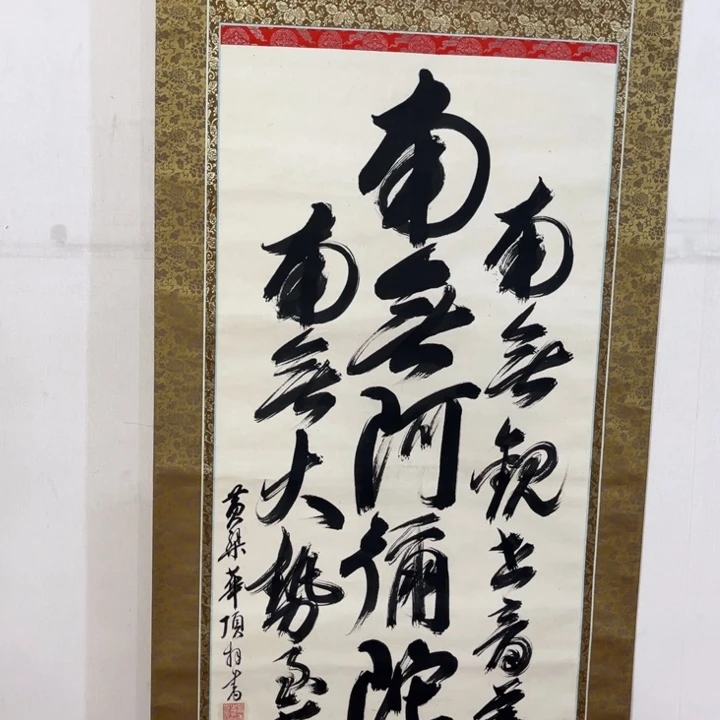 南無觀世音菩
南無阿彌陀
南無大勢至
黄檗華頂拝書